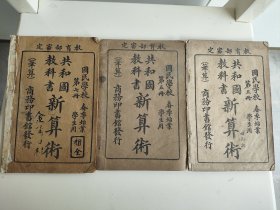 教育部審定
國民學校 春季始業
第七册 學生用
共和國教科書 新算術
(筆算) 商務印書館發行
教育部審定
國民學校 春季始業
第五册 學生用
共和國教科書 新算術
(筆算) 商務印書館發行
教育部審定
國民學校 春季始業
學生用
共和國教科書 新算術
(筆算) 商務印書館發行